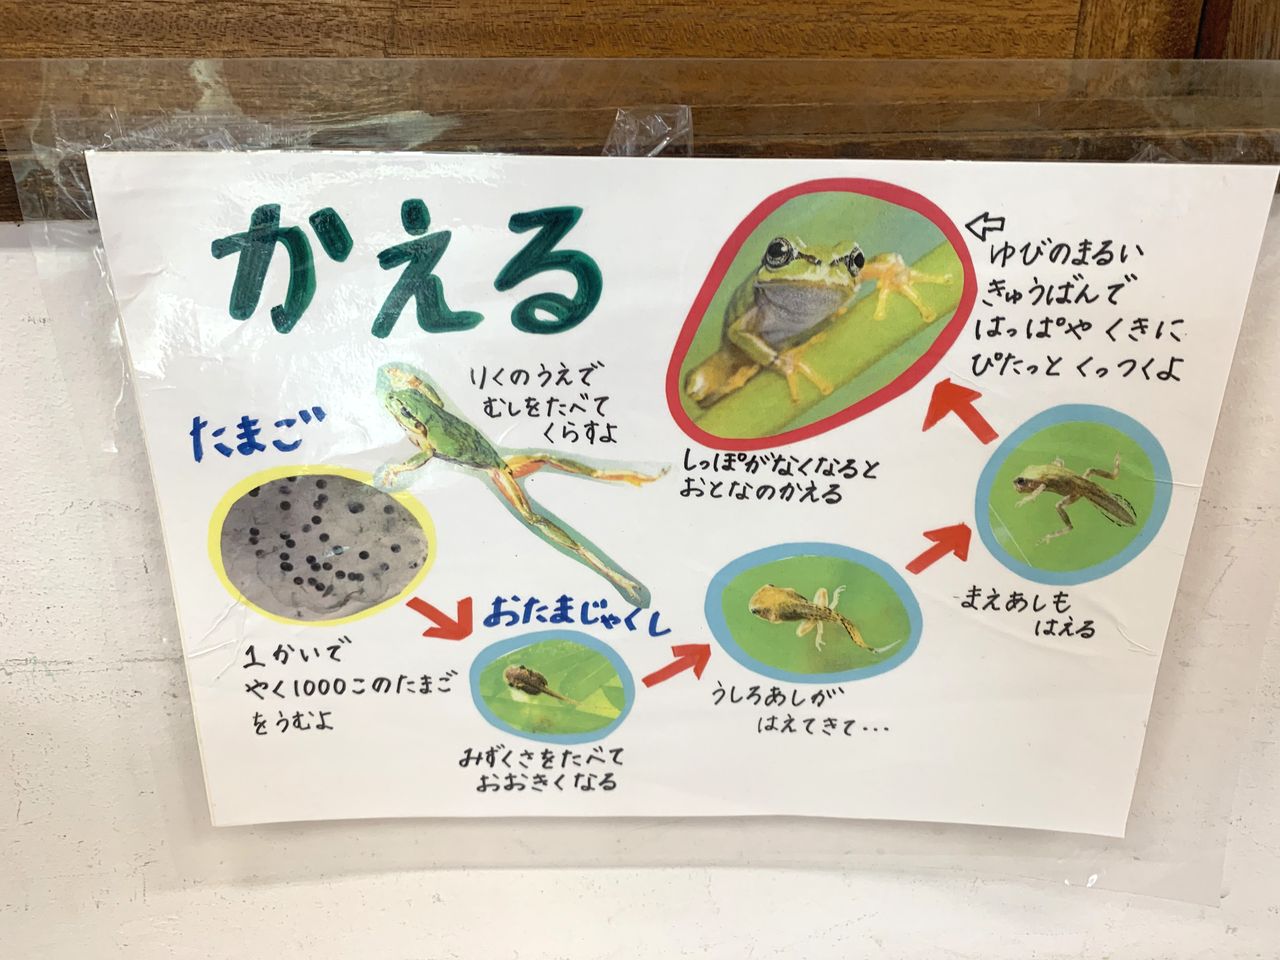 かえる
たまご
1かいで
やく1000このたまご
をうむよ
おたまじゃくし
みずくさをたべて
おおきくなる
うしろあしが
はえてきて・・・
まえあしも
はえる
しっぽがなくなると
おとなのかえる
ゆびのまるい
きゅうばんで
はっぱや くきに
ぴたっと くっつくよ
りくのうえで
むしをたべて
くらすよ